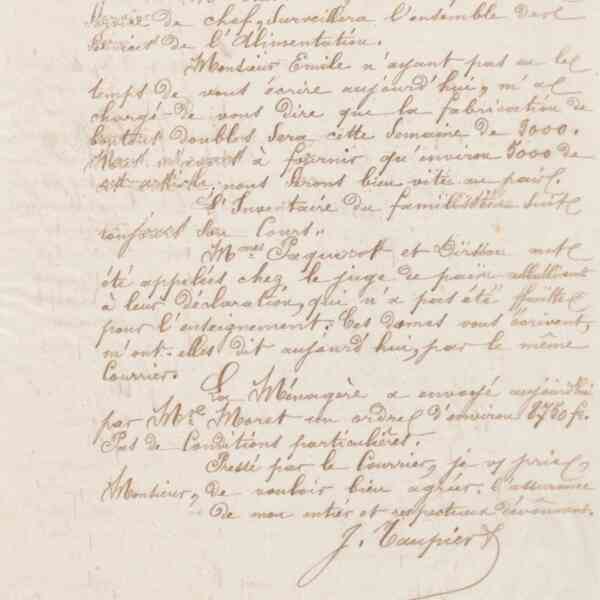 de chef, surveillera l'ensemble des
services de l'Alimentation.
Monsieur Emile n'ayant pas eu le
temps de vous écrire aujourd'hui, m'a
chargé de vous dire que la fabrication de
boutons doubles sera cette semaine de 3000.
à fournir qu'environ 5000 de
cet article, nous serons bien vite au pair.
L'Inventaire du familistère suit
toujours son cours.
Mmes Paquerot et ont
été appelées chez le juge de paix
à leur déclaration, qui n'a pas été faite
pour l'enseignement. Ces dames vous écrivent,
m'ont-elles dit aujourd'hui, par le même
Courrier.
La Ménagère a envoyé aujourd'hui
par Mr. Moret un ordre d'environ 2750 fr.
Pas de Conditions particulières.
Pressé par le Courrier, je v/ prie,
Monsieur, de vouloir bien agréer l'assurance
de mon entier et respectueux dévouement.
J. Taupier